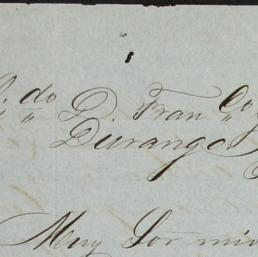 do D. Fran co
Durango
Muy Sor mio